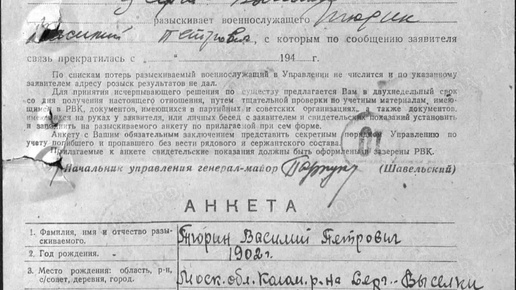 разыскивает военнослужащего Тюрин
Василий Петрович, с которым по сообщению заявителя
связь прекратилась с 194 г.
По спискам потерь разыскиваемый военнослужащий в Управлении не числится и по указанному
заявителем адресу розыск результатов не дал.
Для принятия исчерпывающего решения по существу предлагается Вам в двухнедельный срок
со дня получения настоящего отношения, путем тщательной проверки по учетным материалам, имею-
щимся в РВК, документов, имеющихся в партийных и советских организациях, а также документов,
имеющихся на руках у заявителя, или личных бесед с заявителем и свидетельских показаний установить
и заполнить на разыскиваемого анкету по прилагаемой при сем форме.
Анкету с Вашим обязательным заключением представить секретным порядком Управлению по
учету погибшего и пропавшего без вести рядового и сержантского состава.
Прилагаемые к анкете свидетельские показания должны быть оформлены и заверены РВК.
Начальник управления генерал-майор (Шавельский)
АНКЕТА
1. Фамилия, имя и отчество разы- Тюрин Василий Петрович
скиваемого.
2. Год рождения. 1902 г.
3. Место рождения: область, р-н, Моск. обл. Колом. р-на Серг-Выселки
с/совет, деревня, город.